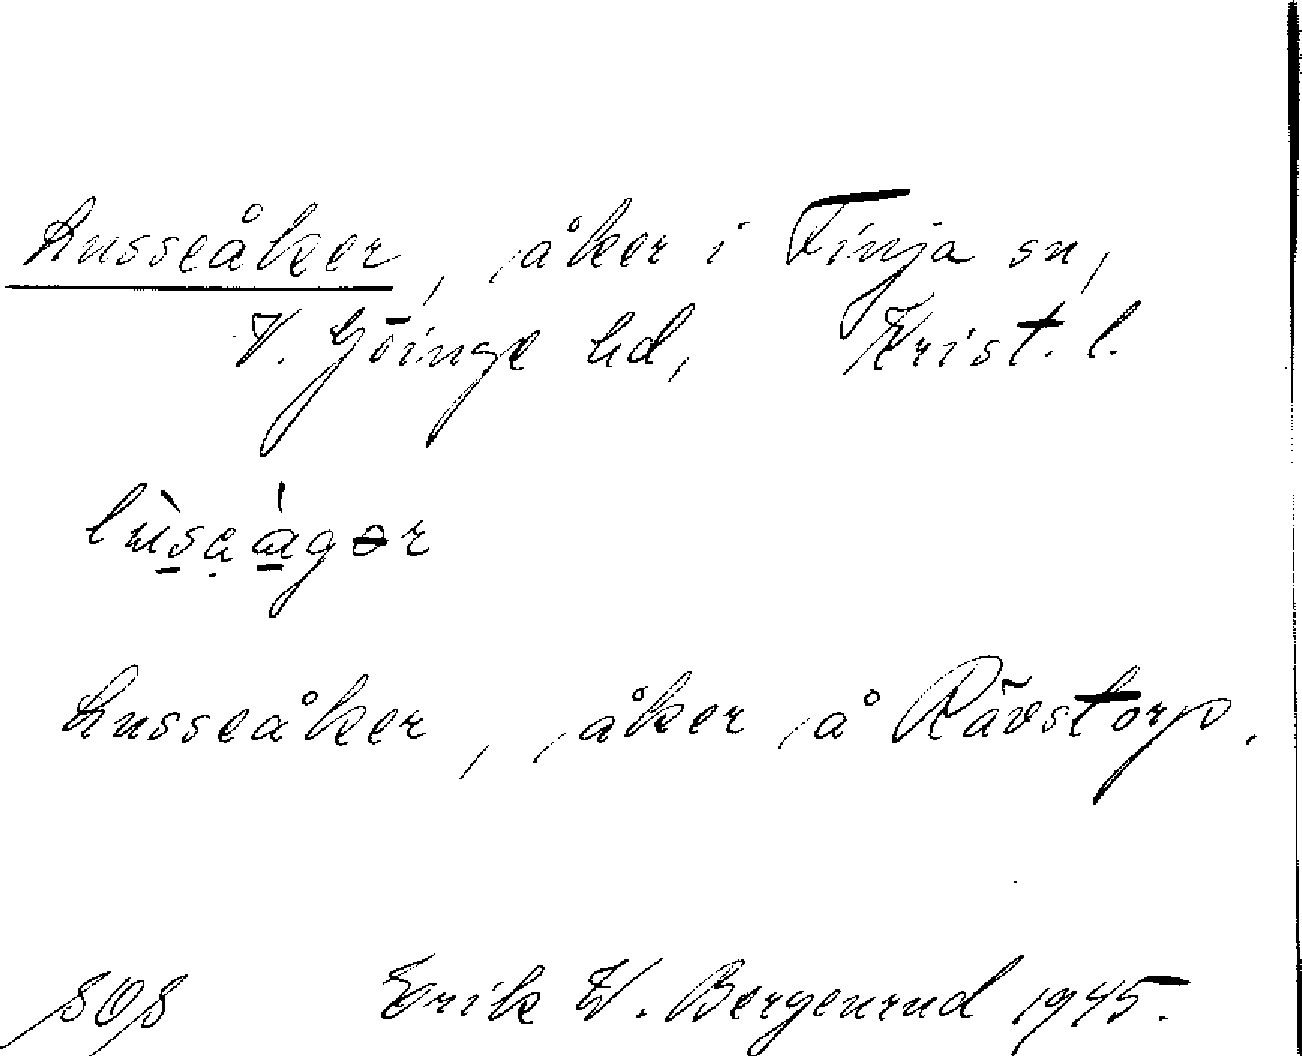 Lusseåker, åker i Finja sn,
V. Göinge hd, Krist. l.
Lusseåker, åker å Rävstorp.
Erik W. Bergenrud 1945.